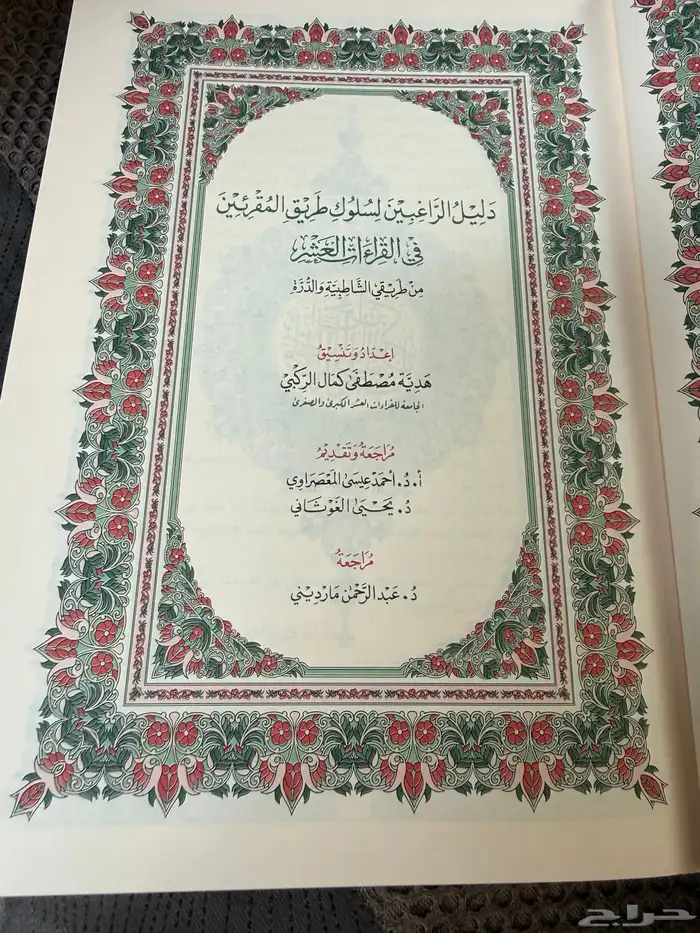 دَلِيْلُ الرَّاغِبِيْنَ لِسُلُوكِ طَرِيْقِ المُقْرِئِيْنَ
فِي القِرَاءَاتِ العَشْرِ
مِنْ طَرِيْقَيِ الشَّاطِبِيَّةِ وَالدُّرَّةِ
إِعْدَادُ وَتَنْسِيْقُ
هَدِيَّة مُصْطَفَىٰ كَمَال الرِّكْبِيّ
الجامعة للقراءات العشر الكبرىٰ والصغرىٰ
مُرَاجَعَةُ وَتَقْدِيْمُ
أ. د. أحمَدْ عِيسَىٰ المَعْصَرَاوِي
د. يَحْيَىٰ الغَوْثَانِي
مُرَاجَعَةُ
د. عَبْدُ الرَّحْمٰن مَارْدِيْنِي
حراج